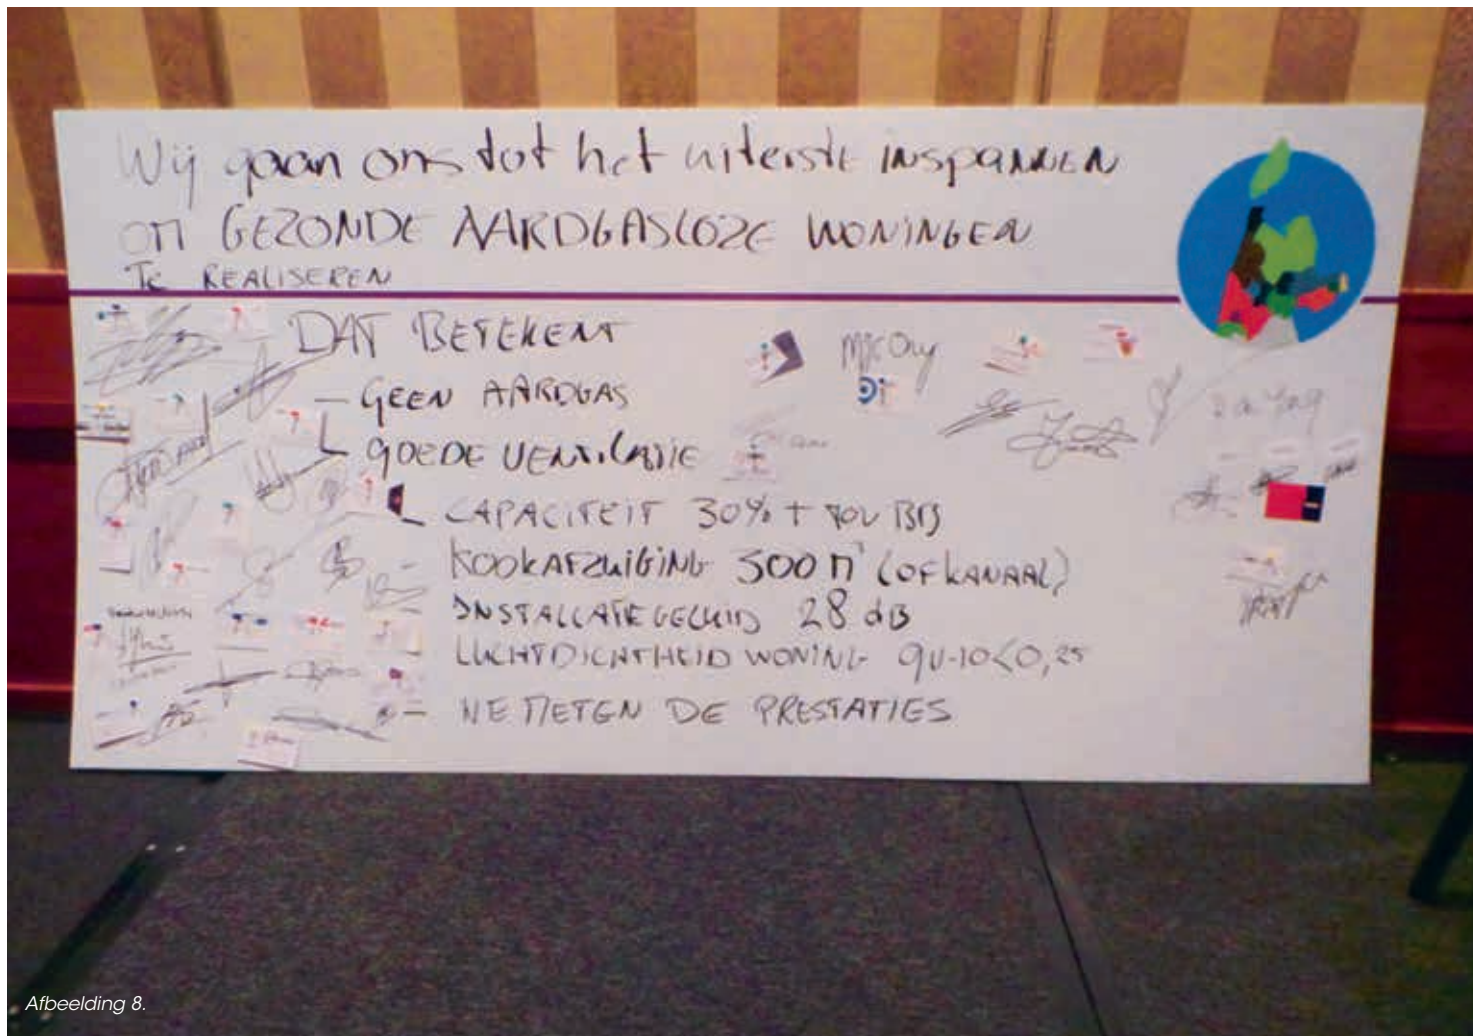 Wij gaan ons tot het uiterste INSPANNEN
OM GEZONDE AARDGASLOZE WONINGEN
TE REALISEREN
DAT BETEKENT
- GEEN AARDGAS
- GOEDE VENTILATIE
- CAPACITEIT 30% + BIJ
- KOOKAFZUIGING 300 M³ (OF KANAAL)
INSTALLATIEGELUID 28 dB
LUCHTDICHTHEID WONING qv-10<0,25
- WE METEN DE PRESTATIES
Afbeelding 8.